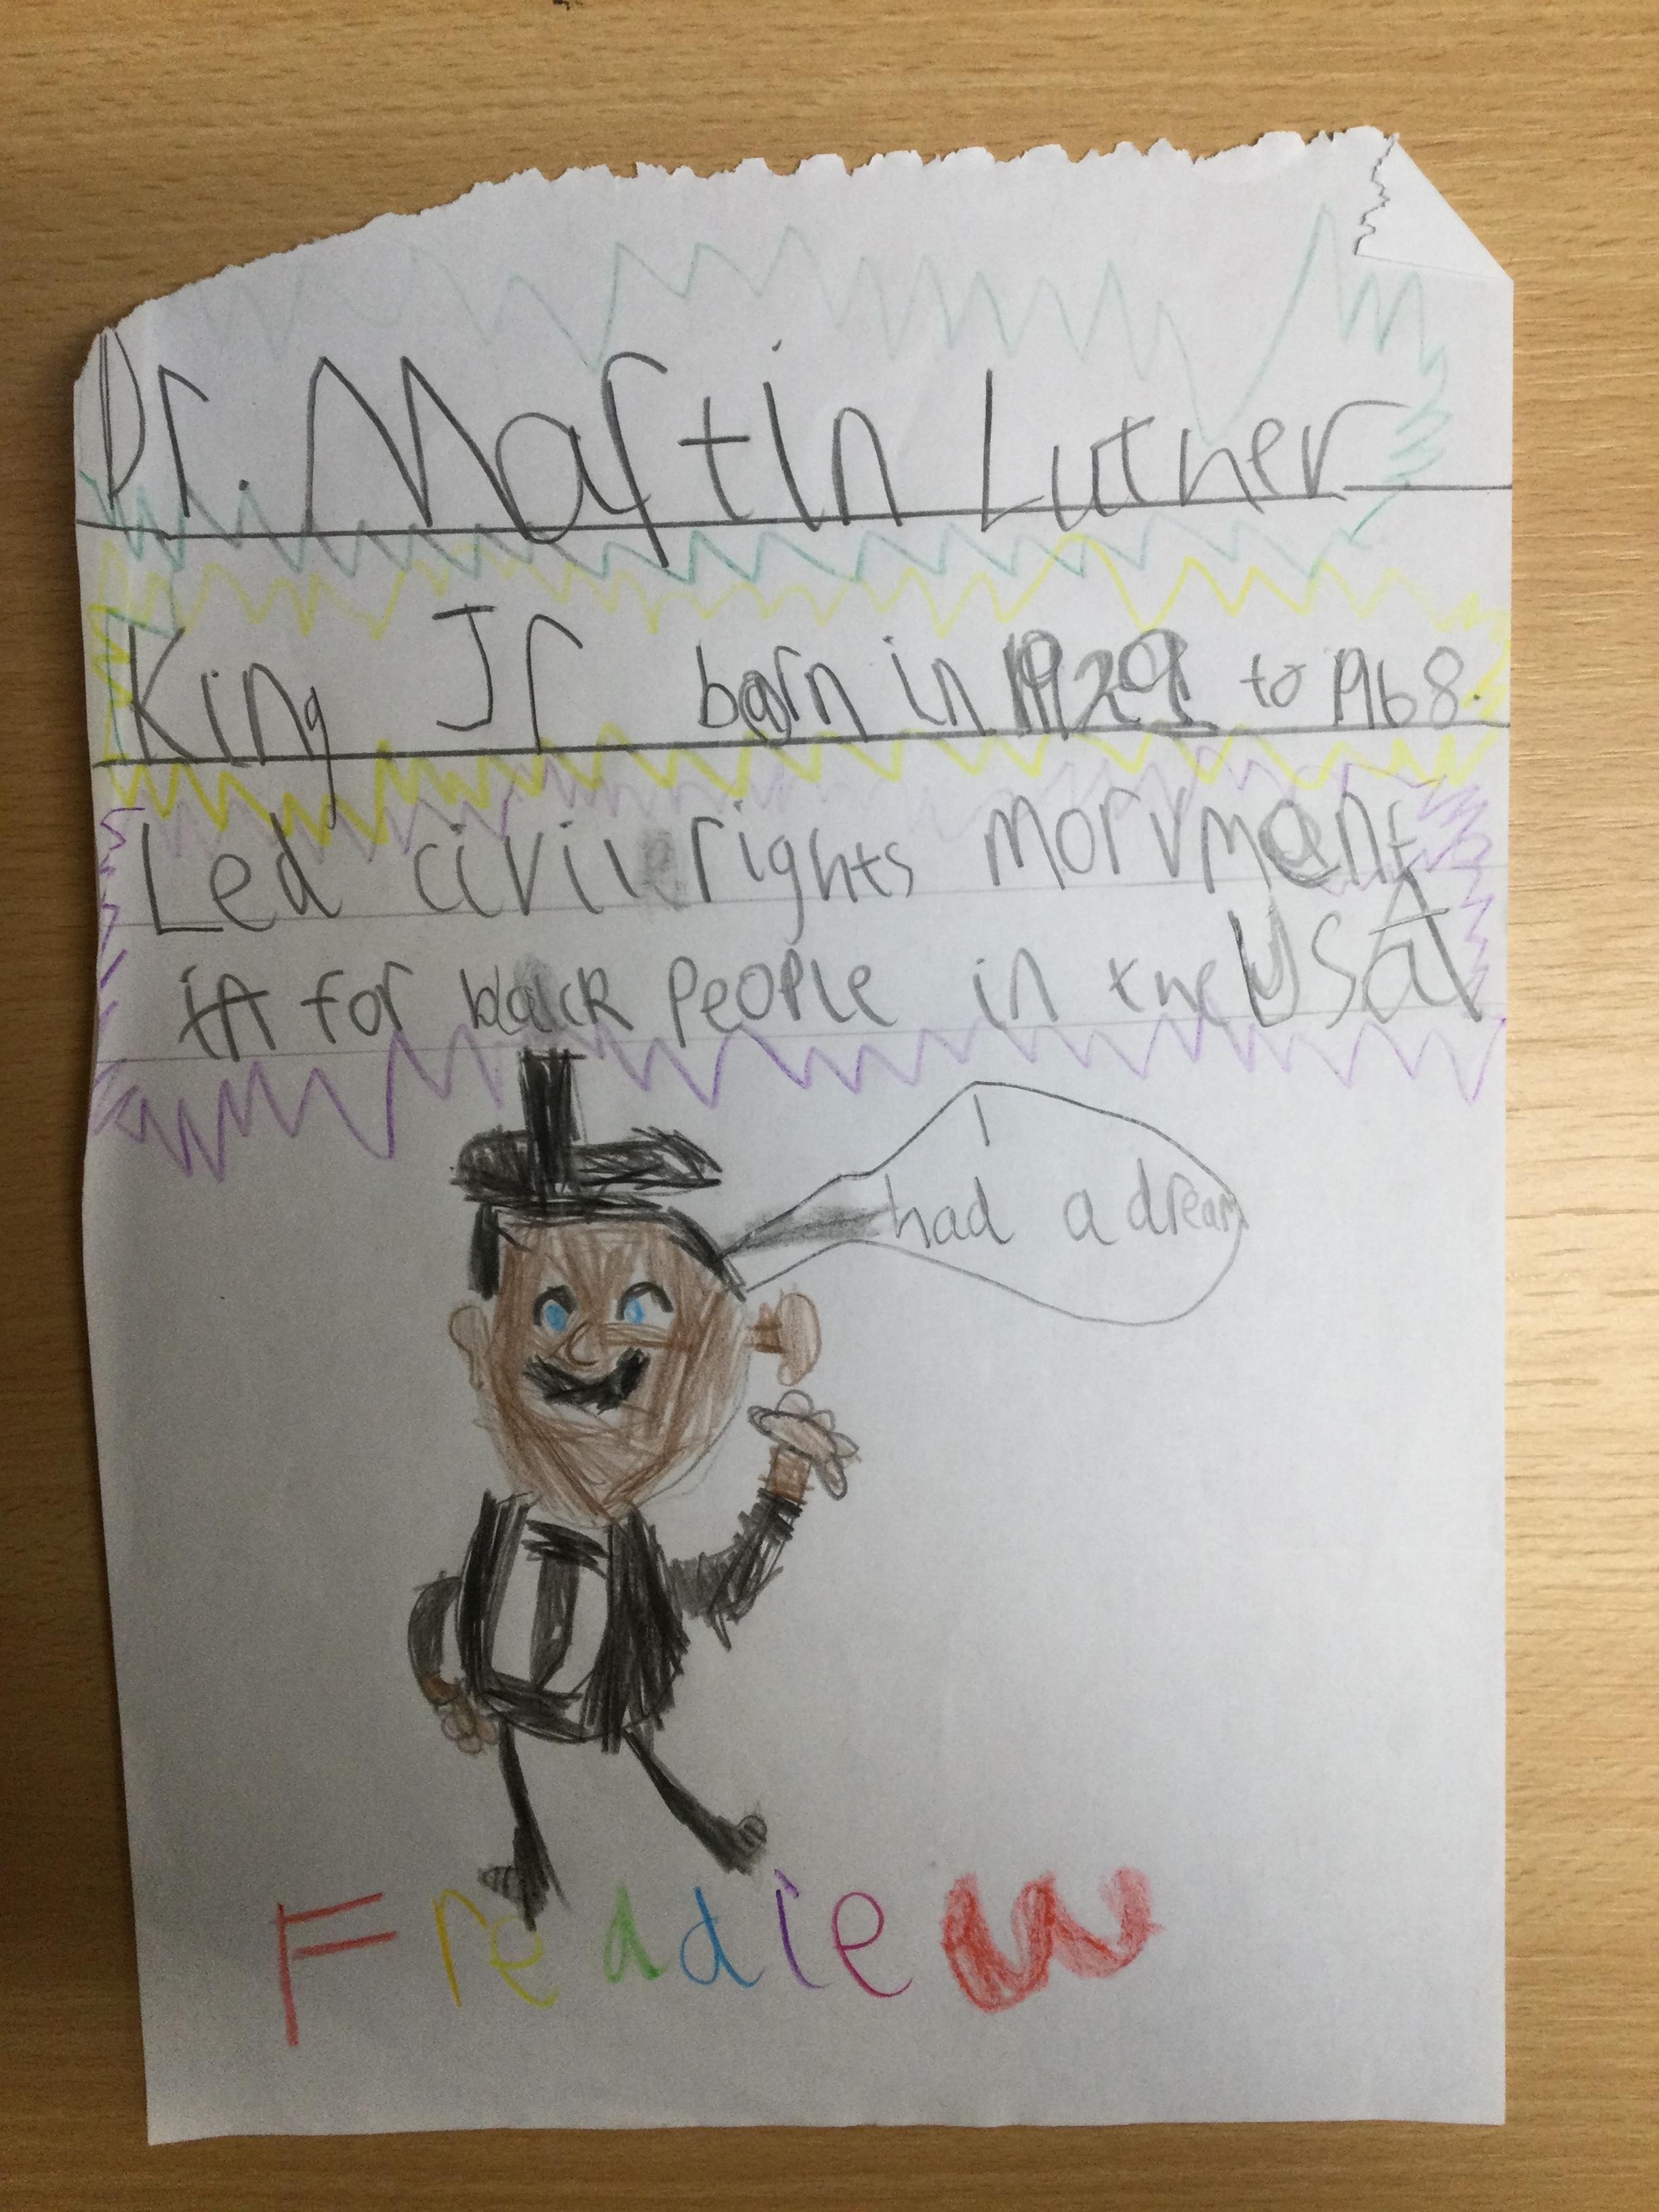 Dr. Martin Luther
King Jr born in 1929 to 1968.
Led civil rights morvment
in for black people in the USA
I
had a dream
Freddie W